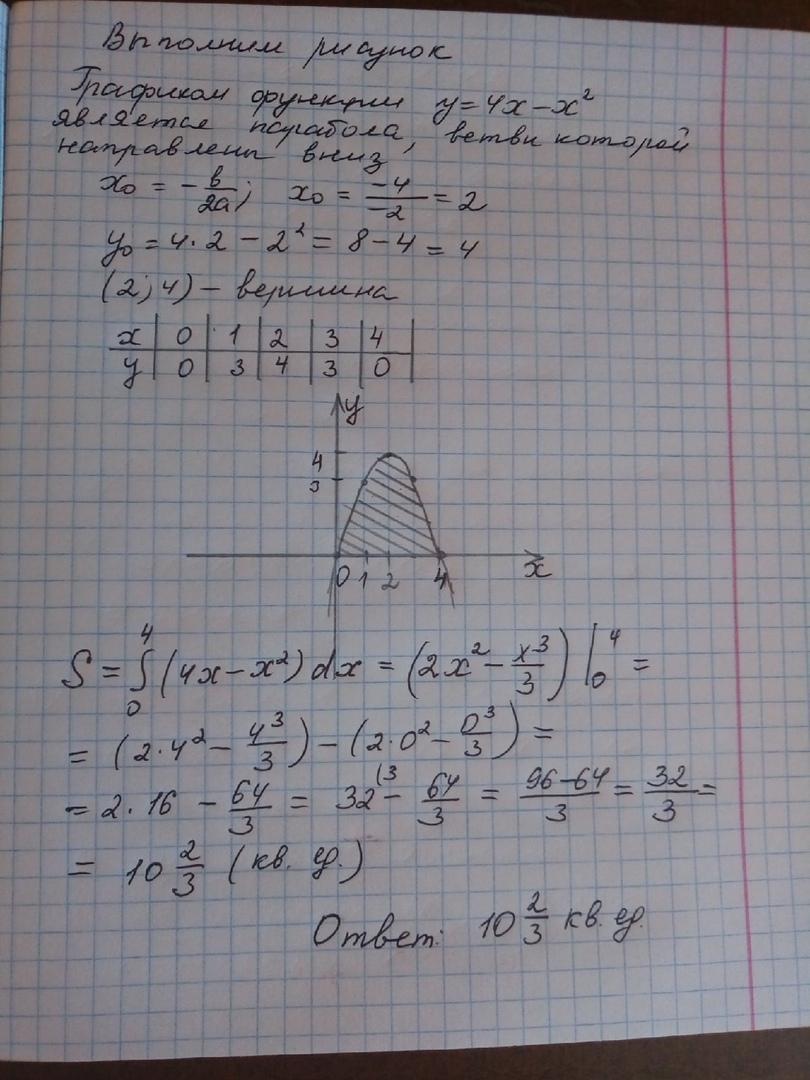 Выполним рисунок
Графиком функции y=4x-x²
является парабола, ветви которой
направлены вниз
x₀ = -в/2a; x₀ = -4/-2 = 2
y₀ = 4·2 - 2² = 8-4 = 4
(2;4) - вершина
x | 0 | 1 | 2 | 3 | 4 |
y | 0 | 3 | 4 | 3 | 0 |
y
4
3
0 1 2 4 x
S = ∫₀⁴ (4x-x²)dx = (2x² - x³/3)|₀⁴ =
= (2·4² - 4³/3) - (2·0² - 0³/3) =
= 2·16 - 64/3 = 32⁽³ - 64/3 = 96-64/3 = 32/3 =
= 10 2/3 (кв. ед.)
Ответ: 10 2/3 кв. ед.